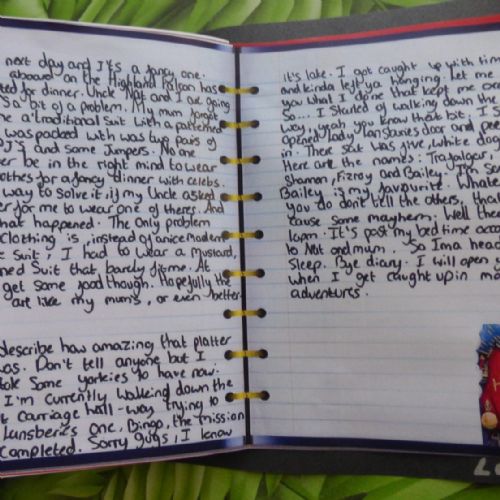 next day and It's a fancy one.
aboard on the Highland Falcon has
ed for dinner. Uncle Nat and I are going
s a bit of a problem. My mum forgot
me a traditional suit with a patterned
was packed with was two pairs of
DJ's and some Jumpers. No one
er be in the right mind to wear
othes for a fancy dinner with celebs.
way to solve it, if my Uncle asked
er for me to wear one of theres. And
hat happened. The only problem
clothing is, instead of a nice modern
suit, I had to wear a mustard,
ned suit that barely fit me. At
get some good though. Hopefully the
are like my mum's, or even better.
describe how amazing that platter
was. Don't tell anyone but I
tole some yorkies to have now.
I'm currently walking down the
t carriage hall-way trying to
Lansberie's one, Bingo, the mission
completed. Sorry guys, I know
it's late. I got caught up with tim
and kinda left ya hanging. Let me
you what I done that kept me on
So... I started of walking down the
way, yeah you know that bit; I s
opened Lady Lansburies door and pe
in. There sat was five, white dog
Here are the names: Trafalgar,
Shannon, Fitzroy and Bailey. I'm se
Bailey is my favourite. Whate
you do don't tell the others, tha
cause some mayhem. Well tha
10pm. It's past my bed time acco
to Nat and mum. So Ima hea
sleep. Bye diary. I will open y
when I get caught up in m
adventures.